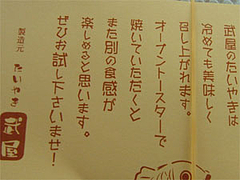 武屋のたいやきは
冷めても美味しく
召し上がれます。
オーブントースターで
焼いていただくと
また別の食感が
楽しめると思います。
ぜひお試し下さいませ！
製造元
たいやき
武屋